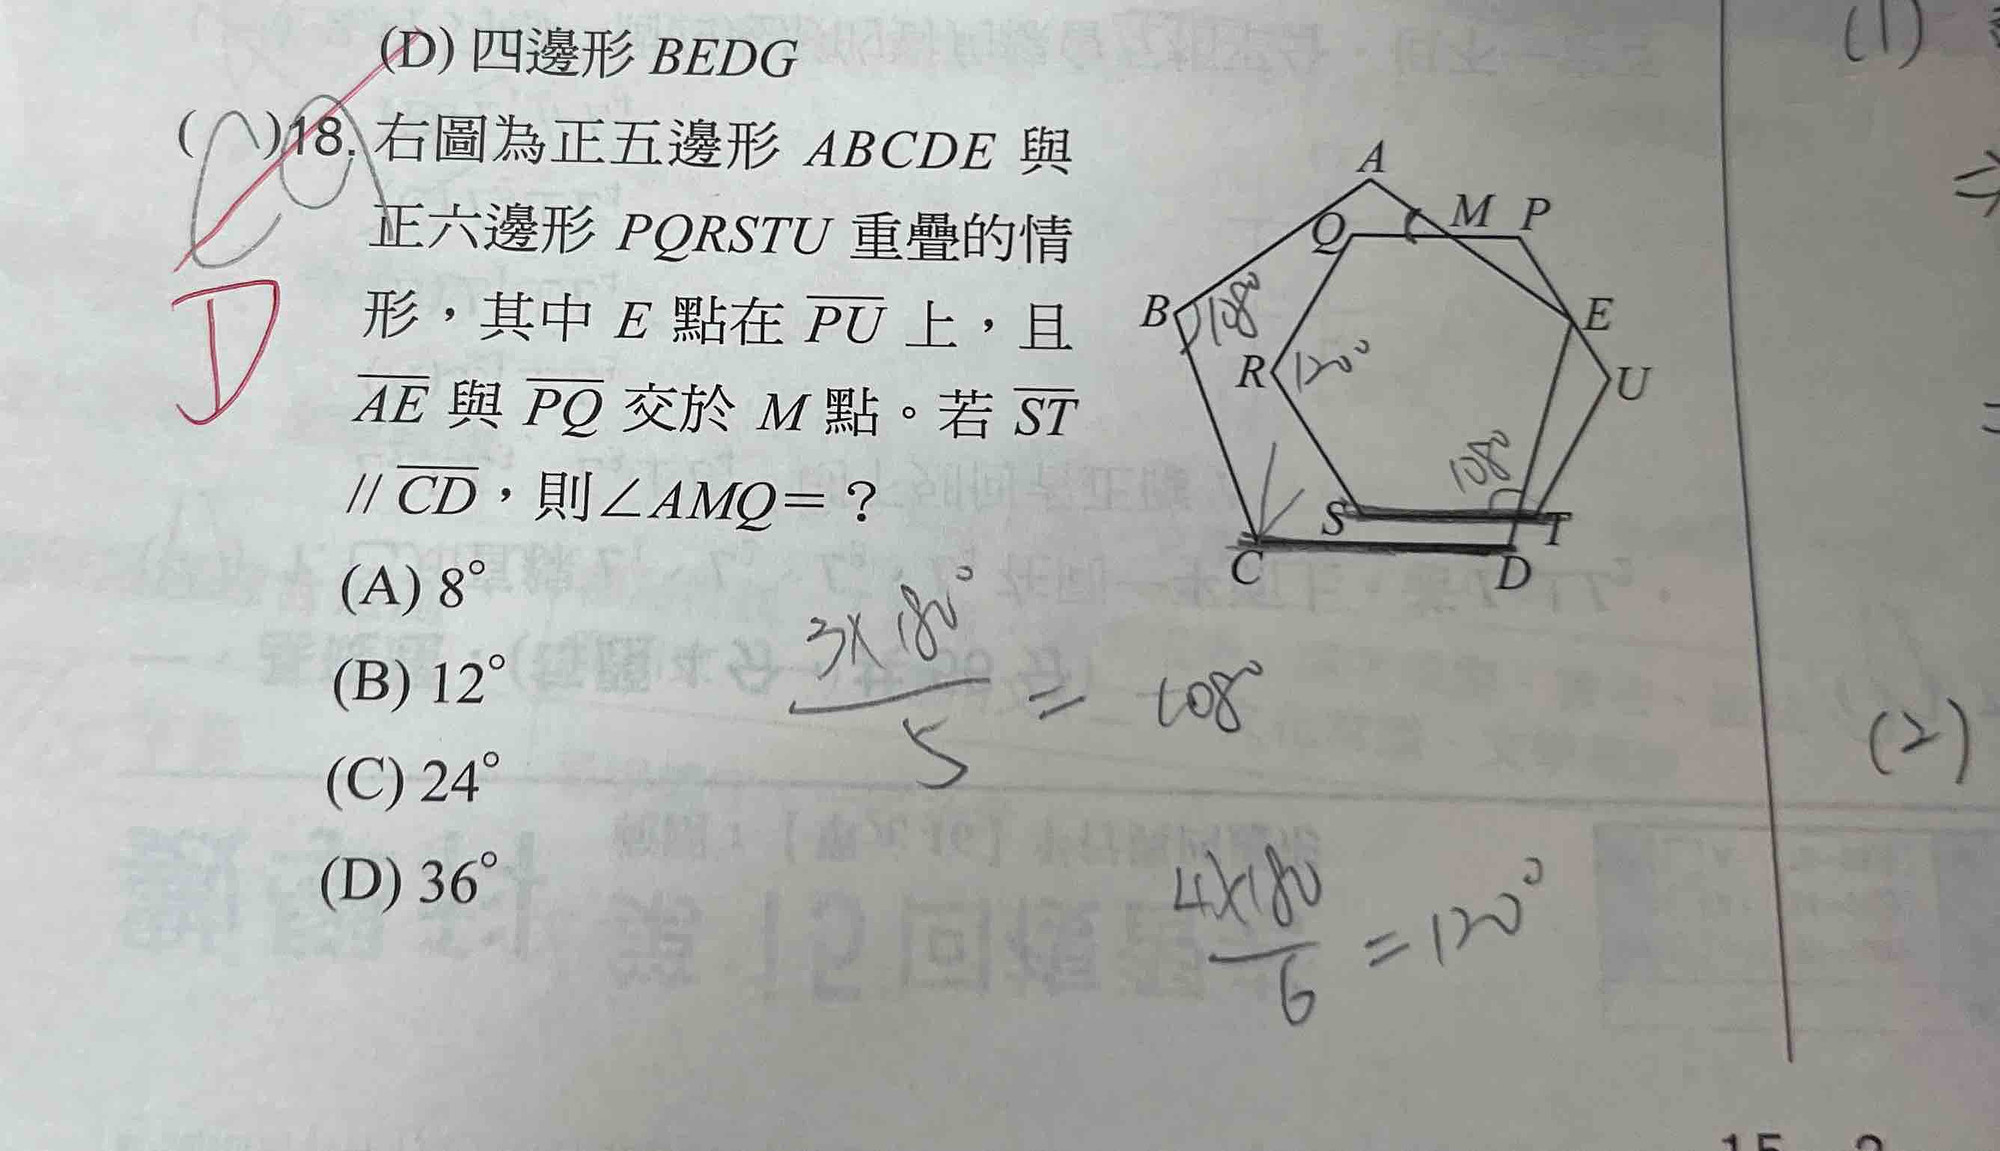 (D) 四邊形 BEDG
( )18. 右圖為正五邊形 ABCDE 與
正六邊形 PQRSTU 重疊的情
形，其中 E 點在 PU 上，且
AE 與 PQ 交於 M 點。若 ST
// CD，則∠AMQ=？
(A) 8°
(B) 12°
(C) 24°
(D) 36°
D
A
Q
M
P
B
108°
E
R
120°
U
108°
S
T
C
D
3×180°
5
= 108°
4×180
6
= 120°
(1)
(2)